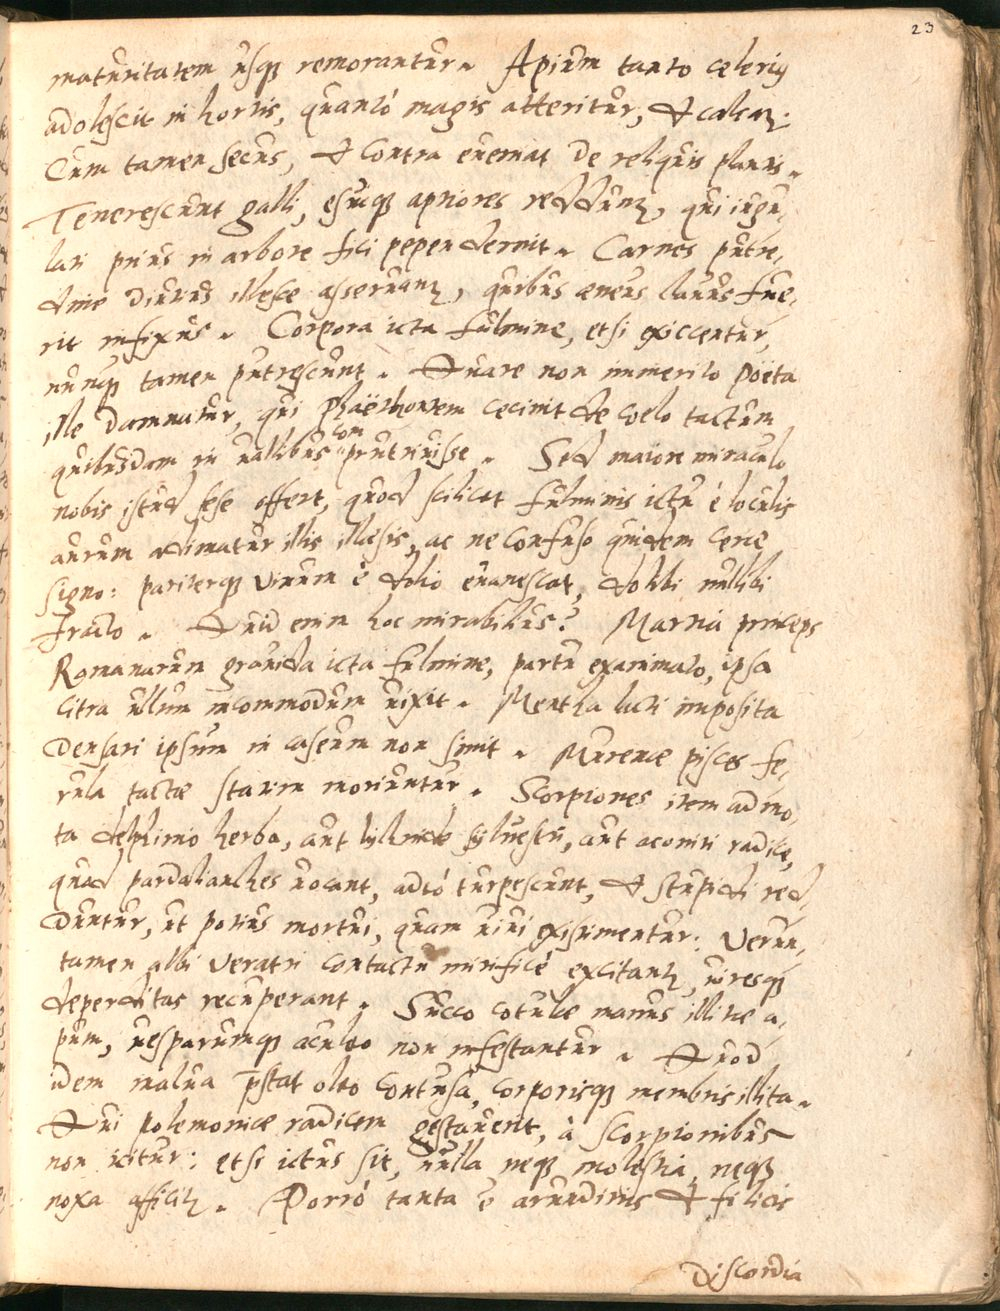 23
maturitatem usq; remorantur. Apium tanto celerius
adolescit in hortis, quantó magis atteritur, & calcat~:
Cum tamen secus, & contra eueniat de reliquis plantis.
Tenerescunt galli, esuiq; aptiores reddunt~, qui iugu,
lati prius in arbore fici pependerint. Carnes putre,
dine diutius illesæ asseruant~, quibus æneus clauus fue,
rit infixus. Corpora icta fulmine, etsi exiccentur,
nunq; tamen putrescunt. Quare non immerito Poëta
ille damnatur, qui Phaëthontem cecinit de coelo tactum
quibusdam in uallibus com putruisse. Sed maiore miraculo
nobis istud sese offert, quod scilicet fulminis ictu é loculis
aurum adimatur illis illæsis, ac ne confuso quidem ceræ
signo: pariterq; vinum é dolio euanescat, dolii nullibi
fracto. Quid enim hoc mirabilius? Martia princeps
Romanarum grauida icta fulmine, partu exanimato, ipsa
citra ullum incommodum uixit. Mentha lacti imposita
densari ipsum in caseum non sinit. Murenæ pisces fe,
rula tactæ statim moriuntur. Scorpiones item admo,
ta delphinio herba, aut lychnide syluestri, aut aconiti radice,
quod pardalianches uocant, adeó turpescunt, & stupidi red,
duntur, ut potius mortui, quam uiui existimentur: Verun,
tamen albi veratri contactu mirificé excitant~, uiresq;
deperditas recuperant. Succo cotulæ manus illitæ a,
pum, uesparumq; aculeo non infestantur. Quod
idem malua p̄stat oleo contusa, corporisq; membris illita.
Qui polemoniæ radicem gestauerit, à scorpionibus
non icitur: etsi ictus sit, nulla neq; molestia, neq;
noxa afficit~. Porró tanta é arundinis & filicis
Discordia